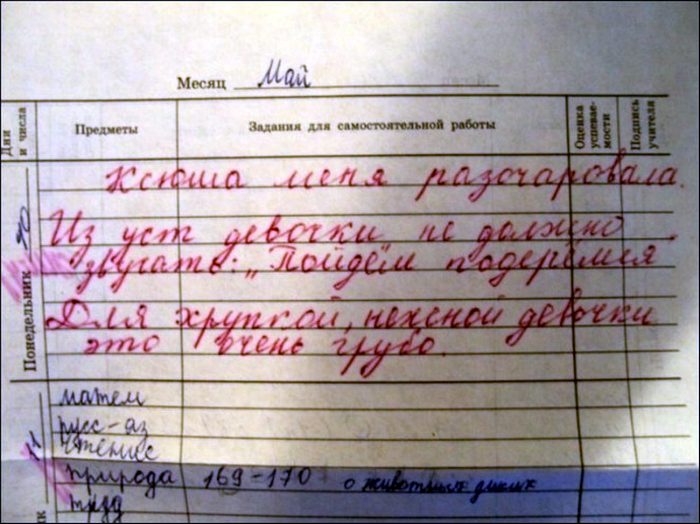 Месяц Май
Дни и числа Предметы Задания для самостоятельной работы Оценка успевае-мости Подпись учителя
Понедельник
Ксюша меня разочаровала.
Из уст девочки не должно
звучать: „Пойдём подерёмся
Для хрупкой, нежной девочки
это очень грубо.
11
матем
русс-яз
чтение
природа 169-170 о животных диких
труд
ик